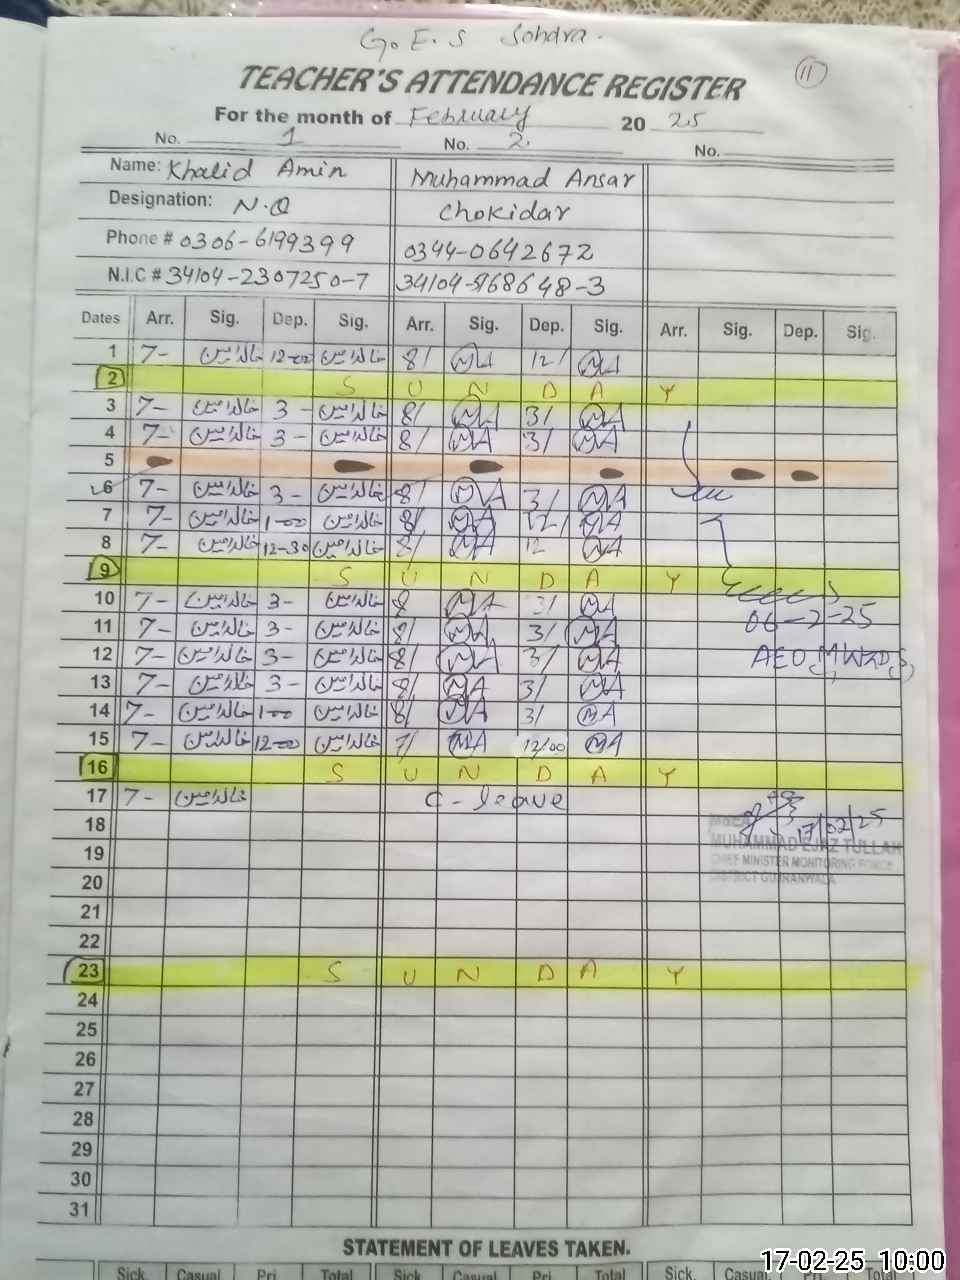 G.E.S Sohdra.
11
TEACHER'S ATTENDANCE REGISTER
For the month of February 20 25
No. 1 No. 2. No.
Name: Khalid Amin Muhammad Ansar
Designation: N.Q Chokidar
Phone # 0306-6199399 0344-0642672
N.I.C # 34104-2307250-7 34104-9686648-3
Dates Arr. Sig. Dep. Sig. Arr. Sig. Dep. Sig. Arr. Sig. Dep. Sig.
1 7- خالد امین 12-00 خالد امین 8/ MA 12/ MA
2 S U N D A Y
3 7- خالد امین 3- خالد امین 8/ MA 3/ MA
4 7- خالد امین 3- خالد امین 8/ MA 3/ MA
5
6 7- خالد امین 3- خالد امین 8/ MA 3/ MA
7 7- خالد امین 1-00 خالد امین 8/ MA 12/ MA
8 7- خالد امین 12-30 خالد امین 8/ MA 12 MA
9 S U N D A Y
10 7- خالد امین 3- خالد امین 8 MA 3/ MA
06-2-25
11 7- خالد امین 3- خالد امین 8/ MA 3/ MA
12 7- خالد امین 3- خالد امین 8/ MA 3/ MA
AEO, M, WZD,
13 7- خالد امین 3- خالد امین 8/ MA 3/ MA
14 7- خالد امین 1-00 خالد امین 8/ MA 3/ MA
15 7- خالد امین 12-00 خالد امین 7/ MA 12/00 MA
16 S U N D A Y
17 7- خالد امین C-leave
18 17/02/25
MUHAMMAD EJAZ TULLAH
19
CHIEF MINISTER MONITORING FORCE
20
DISTRICT GUJRANWALA
21
22
23 S U N D A Y
24
25
26
27
28
29
30
31
STATEMENT OF LEAVES TAKEN.
Sick. Casual Pri. Total Sick. Casual Pri. Total Sick. Casual Pri. Total
17-02-25 10:00